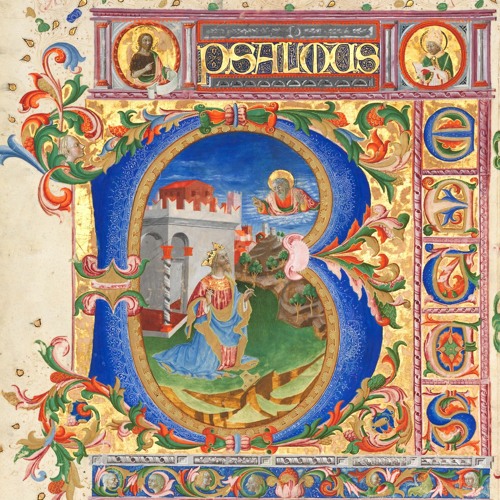 PSALMUS
BEATUS